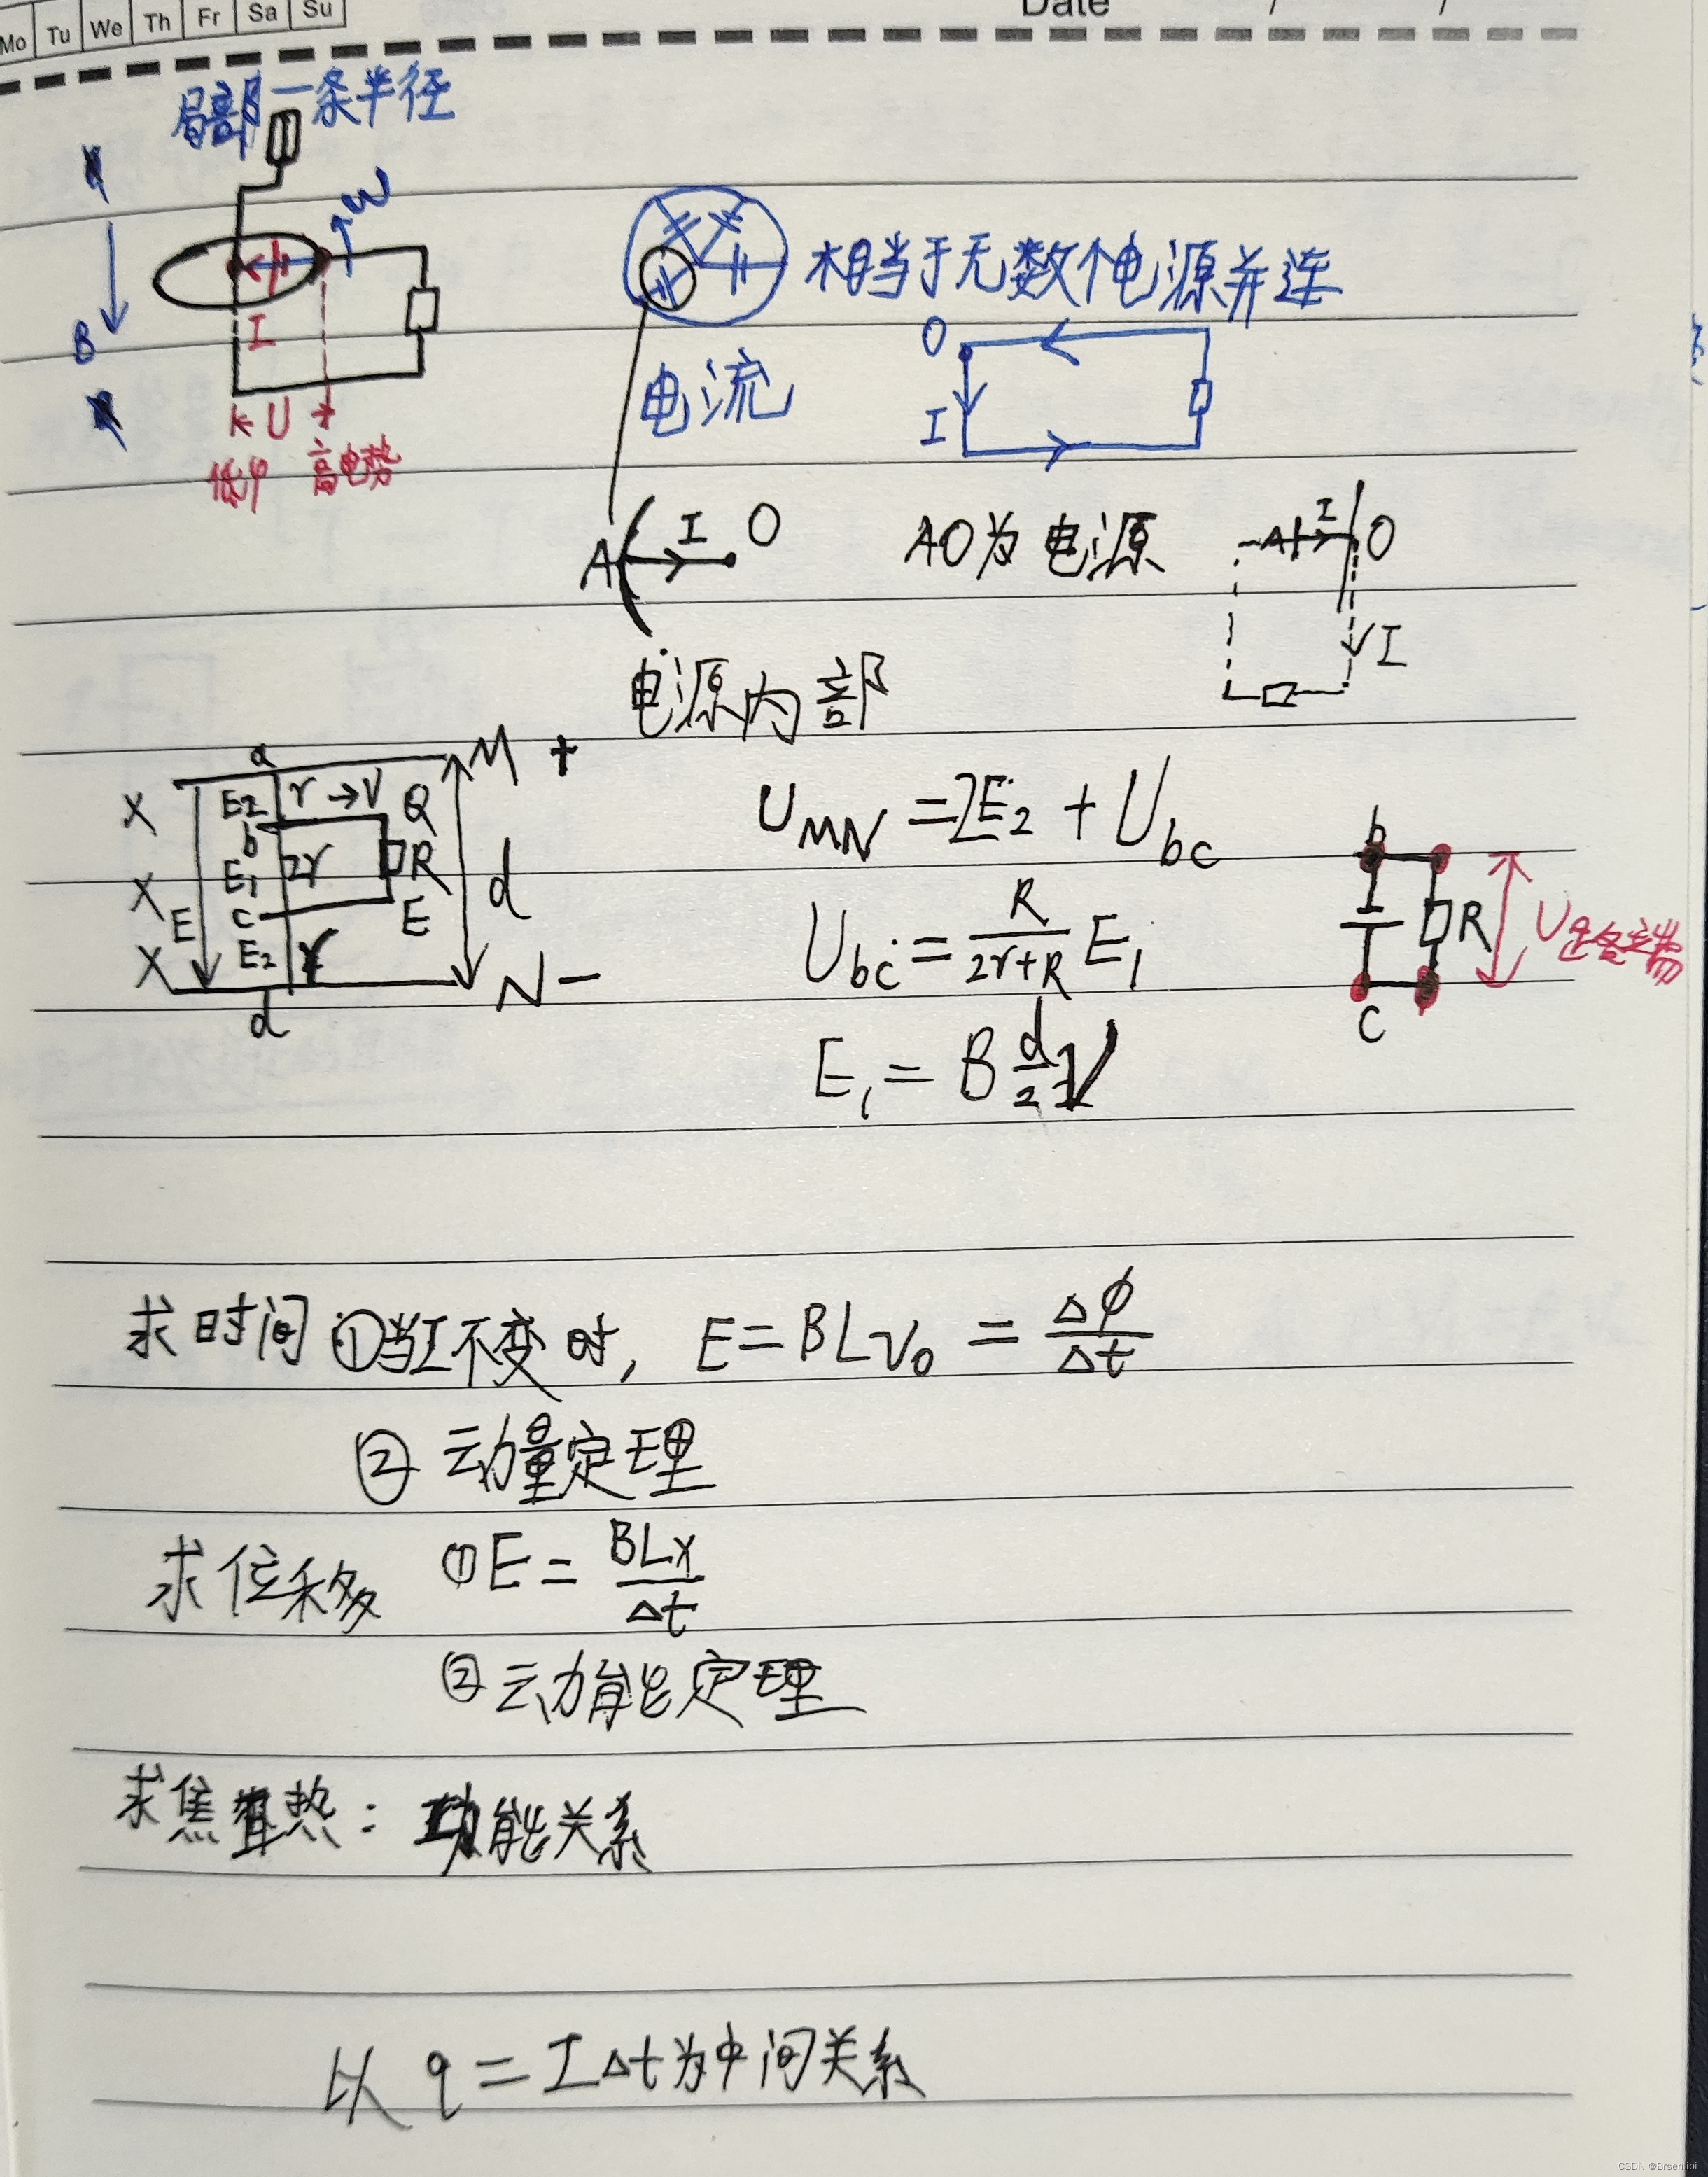 Mo Tu We Th Fr Sa Su
Date / /
局部一条半径
ω
B
I
U
低φ 高电势
相当于无数个电源并连
电流
O
I
A I O
AO为电源
A I O
I
电源内部
a M +
X E2 r →V Q
b
X E1 2r R d
E c E
X E2 r
d N −
U_MN = 2E₂ + U_bc
U_bc = R/(2r+R) E₁
E₁ = B d/2 V
b
R
c
求时间 ①当I不变时, E = BLv₀ = ΔΦ/Δt
② 动量定理
求位移 ①E = BLx/Δt
②动能定理
求焦耳热: 功能关系
以 q = IΔt为中间关系
CSDN @Brsentibi